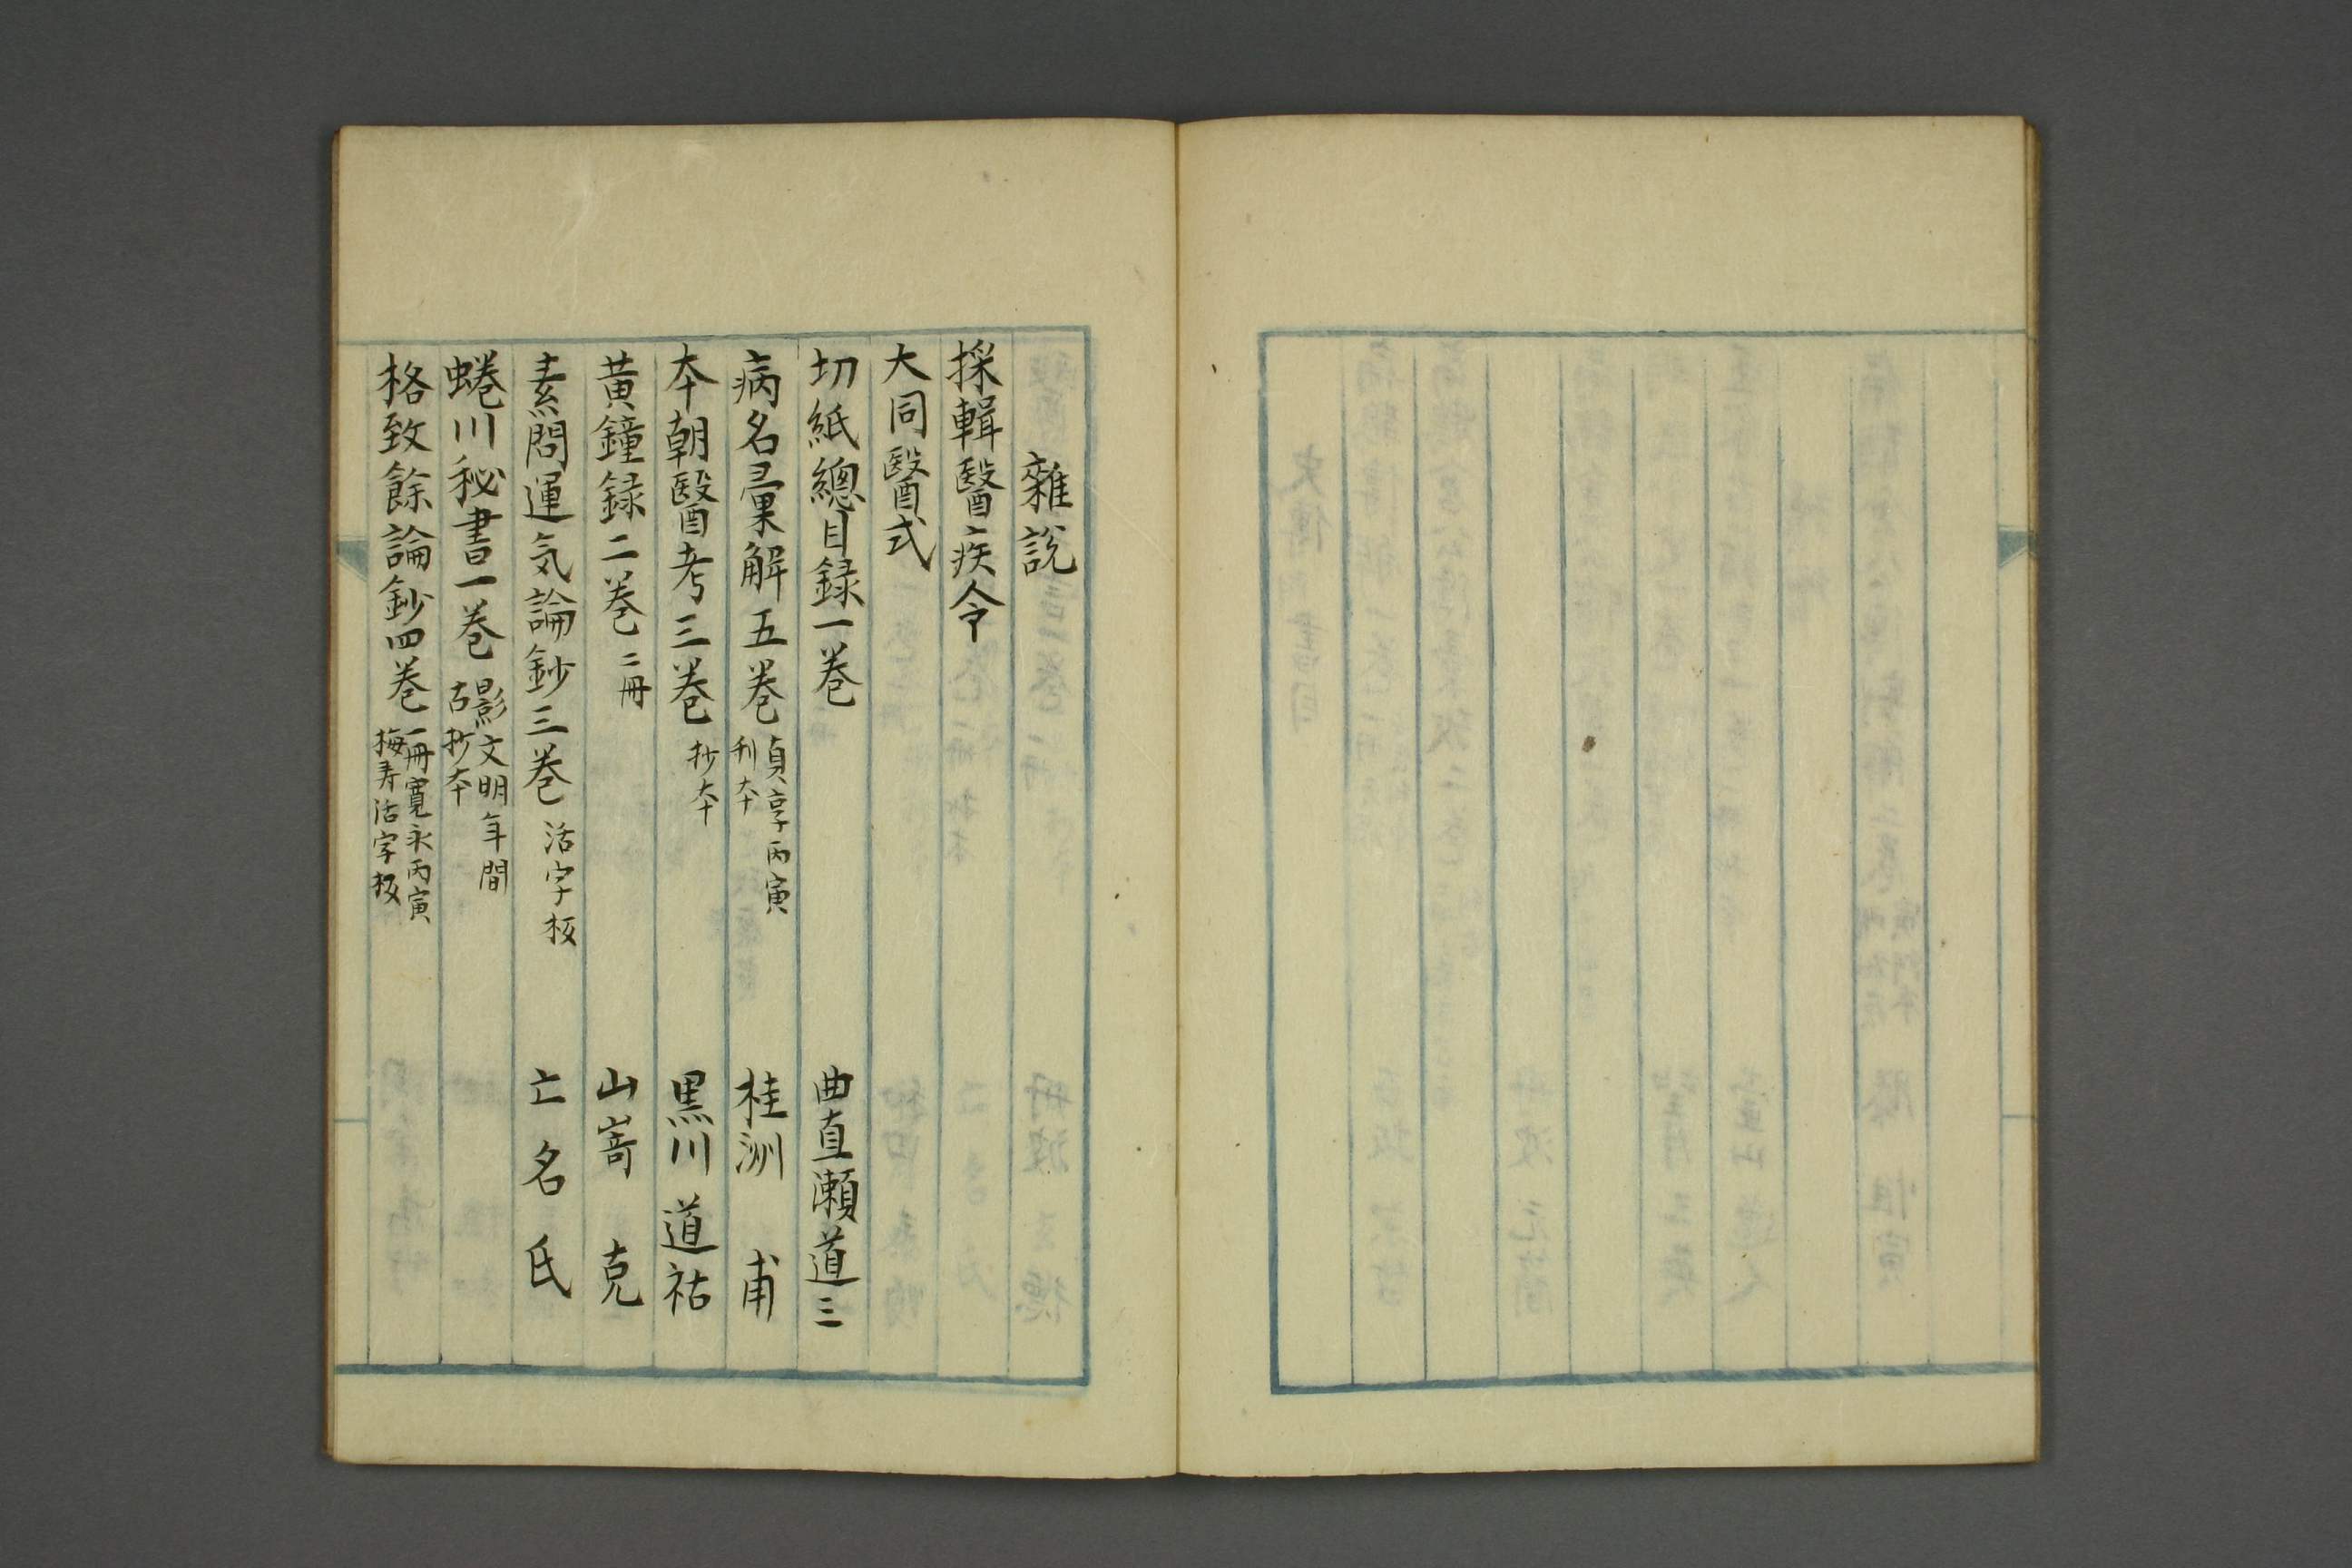 雜説
採輯醫疾令
大同醫式
切紙總目録一巻 曲直瀬道三
病名彙解五巻 貞享丙寅刊本 桂洲甫
本朝醫考三巻 抄本 黒川道祐
黄鐘録二巻 二冊 山嵜克
素問運気論鈔三巻 活字板 亡名氏
蜷川秘書一巻 影文明年間古抄本
格致餘論鈔四巻 一冊寛永丙寅梅寿活字板